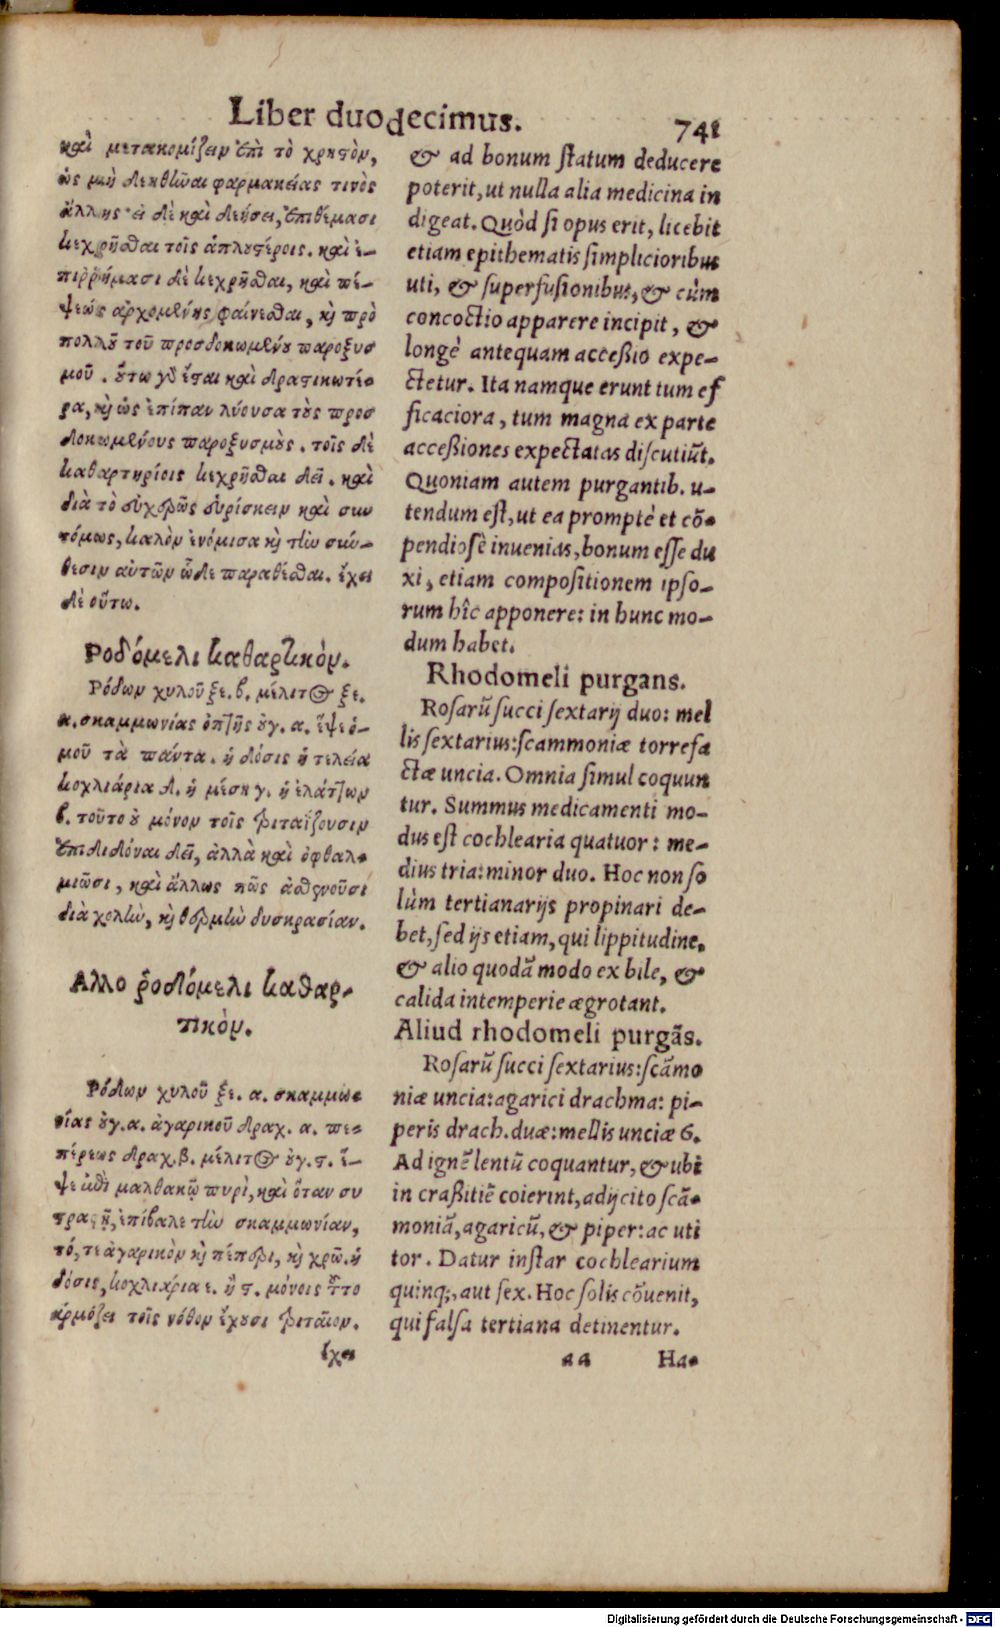 Liber duodecimus.
741
καὶ μετακομίζειν ἐπὶ τὸ χρηστὸν,
ὡς μὴ δεηθῶσαι φαρμακείας τινὸς
ἄλλης· εἰ δὲ καὶ δεήσει, ἐπιθέμασι
κεχρῆσθαι τοῖς ἁπλουστέροις. καὶ ἐ-
πιῤῥήμασι δὲ κεχρῆσθαι, καὶ πέ-
ψεώς ἀρχομένης φαίνεσθαι, καὶ πρὸ
πολλοῦ τοῦ προσδοκωμένου παροξυσ
μοῦ. οὕτω γὰρ ἔσται καὶ δραστικωτέ-
ρα, καὶ ὡς ἐπίπαν λύουσα τοὺς προσ
δοκωμένους παροξυσμοὺς. τοῖς δὲ
καθαρτηρίοις κεχρῆσθαι δεῖ. καὶ
διὰ τὸ συχερῶς εὑρίσκειν καὶ συν
τόμως, καλὸν ἐνόμισα καὶ τὴν σύν-
θεσιν αὐτῶν ὧδε παραθέσθαι. ἔχει
δὲ οὕτω.
Ροδόμελι καθαρτικὸν.
Ρόδων χυλοῦ ξε. β. μέλιτος ξε.
α. σκαμμωνίας ὀπτῆς οὐγ. α. ἕψε ὁ-
μοῦ τὰ πάντα. ἡ δόσις ἡ τελεία
κοχλιάρια δ. ἡ μέση γ. ἡ ἐλάττων
β. τοῦτο οὐ μόνον τοῖς τριταΐζουσιν
ἐπιδιδόναι δεῖ, ἀλλὰ καὶ ὀφθαλ-
μιῶσι, καὶ ἄλλως πῶς ἀσθενοῦσι
διὰ χολὴν, καὶ θερμὴν δυσκρασίαν.
Αλλο ῥοδόμελι καθαρ-
τικὸν.
Ρόδων χυλοῦ ξε. α. σκαμμω-
νίας οὐγ. α. ἀγαρικοῦ δραχ. α. πε-
πέρεως δραχ. β. μέλιτος οὐγ. ϛ. ἕ-
ψε ἐπὶ μαλθακῷ πυρὶ, καὶ ὅταν συ
στραφῇ, ἐπίβαλε τὴν σκαμμωνίαν,
τό, τε ἀγαρικὸν καὶ πέπερι, καὶ χρῶ. ἡ
δόσις, κοχλιάρια ε. ἢ ϛ. μόνοις τοῦτο
ἁρμόζει τοῖς νόθον ἔχουσι τριταῖον.
ἔχει
& ad bonum statum deducere
poterit, ut nulla alia medicina in
digeat. Quòd si opus erit, licebit
etiam epithematis simplicioribus
uti, & superfusionibus, & cùm
concoctio apparere incipit, &
longè antequam accessio expe-
ctetur. Ita namque erunt tum ef
ficaciora, tum magna ex parte
accessiones expectatas discutiũt.
Quoniam autem purgantib. u-
tendum est, ut ea promptè et cõ-
pendiosè inuenias, bonum esse du
xi, etiam compositionem ipso-
rum hîc apponere: in hunc mo-
dum habet.
Rhodomeli purgans.
Rosarũ succi sextarij duo: mel
lis sextarius: scammoniæ torrefa
ctæ uncia. Omnia simul coquun
tur. Summus medicamenti mo-
dus est cochlearia quatuor: me-
dius tria: minor duo. Hoc non so
lùm tertianarijs propinari de-
bet, sed ijs etiam, qui lippitudine,
& alio quodã modo ex bile, &
calida intemperie ægrotant.
Aliud rhodomeli purgãs.
Rosarũ succi sextarius: scãmo
niæ uncia: agarici drachma: pi-
peris drach. duæ: mellis unciæ 6.
Ad ignẽ lentũ coquantur, & ubi
in crassitiẽ coierint, adijcito scã-
moniã, agaricũ, & piper: ac uti
tor. Datur instar cochlearium
quinq;, aut sex. Hoc solis cõuenit,
qui falsa tertiana detinentur.
aa
Ha-
Digitalisierung gefördert durch die Deutsche Forschungsgemeinschaft - DFG